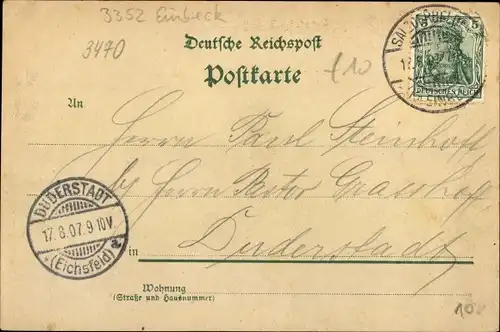 3352 Einbeck
3470
Deutsche Reichspost
Postkarte
£10
An
Herrn Paul Steinhoff
bei Herrn Pastor Grashoff
DUDERSTADT
17.8.07.9-10V
(Eichsfeld)
in Duderstadt
Wohnung
(Straße und Hausnummer)
DEUTSCHES REICH